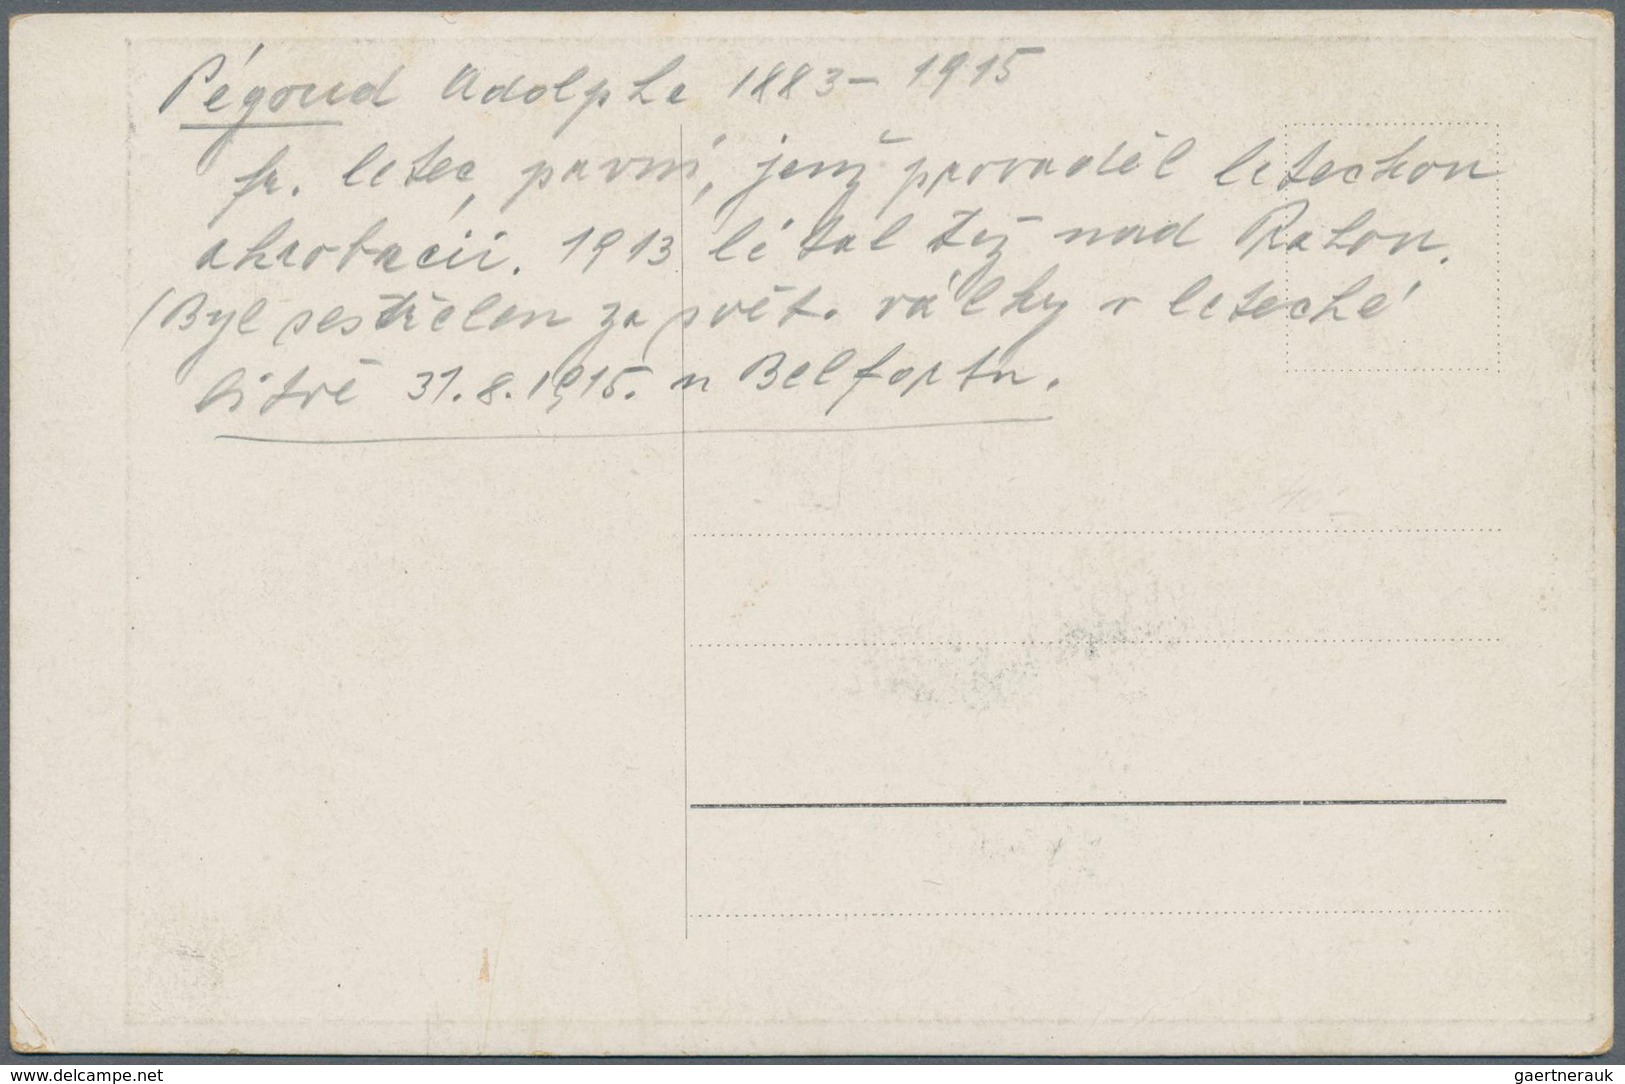 Pégoud Adolphe 1883 – 1915
fr. letec, první, jenž provaděl leteckou
akrobacii. 1913 létal též nad Rakou.
(Byl sestřelen za svět. války v letecké
bitvě 31.8.1915. u Belfortu.
www.delcampe.com
gaertnerauk